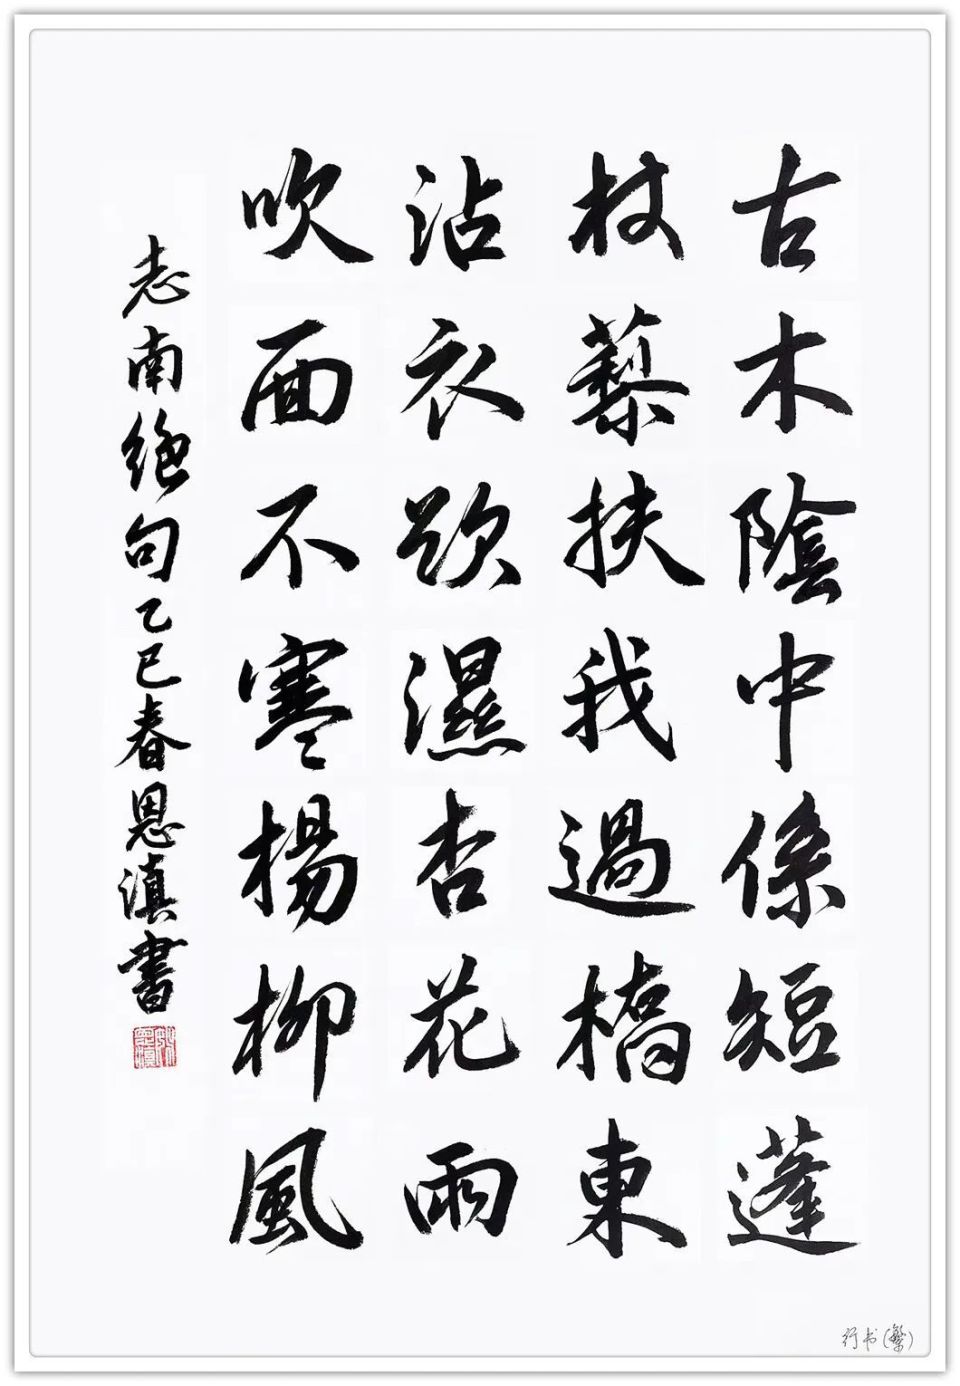 古木陰中係短蓬
杖藜扶我過橋東
沾衣欲濕杏花雨
吹面不寒楊柳風
志南绝句乙巳春恩滇書
行书(繁)